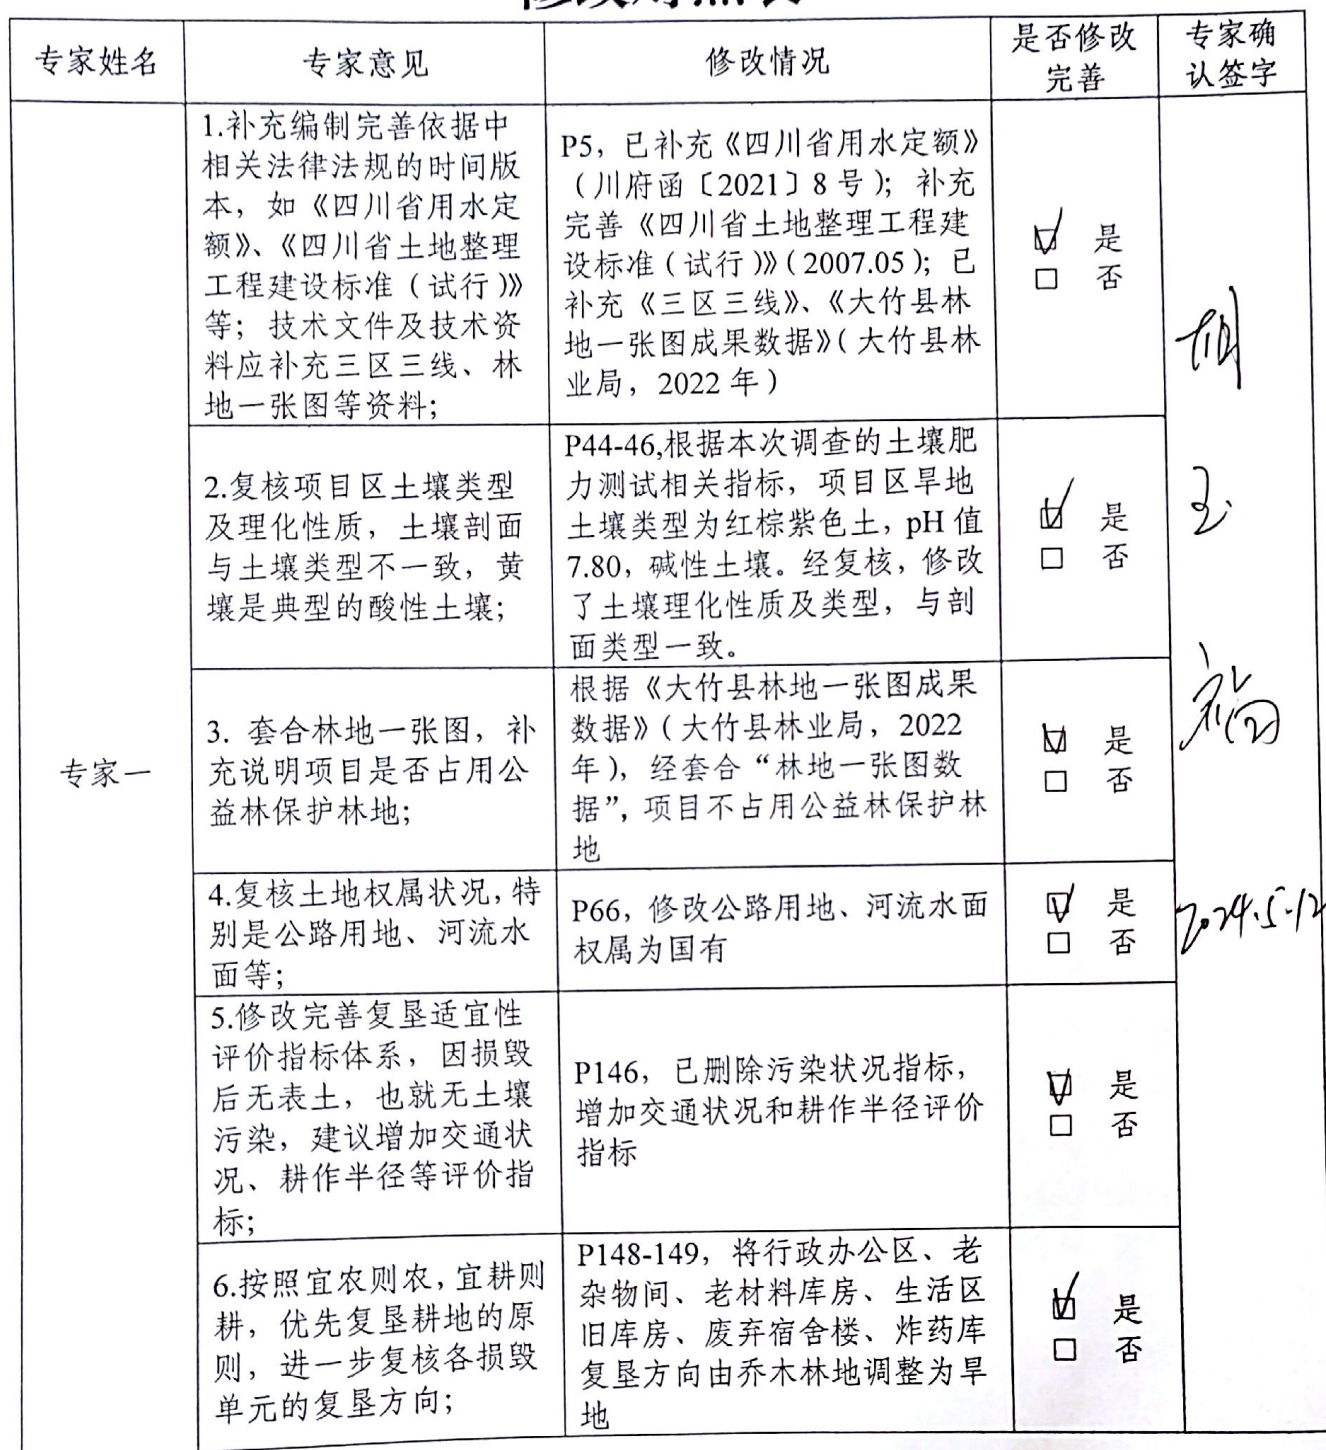 修改对照表
专家姓名
专家意见
修改情况
是否修改
完善
专家确
认签字
专家一
1.补充编制完善依据中
相关法律法规的时间版
本，如《四川省用水定
额》、《四川省土地整理
工程建设标准（试行）》
等；技术文件及技术资
料应补充三区三线、林
地一张图等资料；
P5，已补充《四川省用水定额》
（川府函〔2021〕8 号）；补充
完善《四川省土地整理工程建
设标准（试行）》（2007.05）；已
补充《三区三线》、《大竹县林
地一张图成果数据》（大竹县林
业局，2022 年）
☑ 是
□ 否
2.复核项目区土壤类型
及理化性质，土壤剖面
与土壤类型不一致，黄
壤是典型的酸性土壤；
P44-46,根据本次调查的土壤肥
力测试相关指标，项目区旱地
土壤类型为红棕紫色土，pH 值
7.80，碱性土壤。经复核，修改
了土壤理化性质及类型，与剖
面类型一致。
☑ 是
□ 否
3. 套合林地一张图，补
充说明项目是否占用公
益林保护林地；
根据《大竹县林地一张图成果
数据》（大竹县林业局，2022
年），经套合“林地一张图数
据”，项目不占用公益林保护林
地
☑ 是
□ 否
4.复核土地权属状况，特
别是公路用地、河流水
面等；
P66，修改公路用地、河流水面
权属为国有
☑ 是
□ 否
5.修改完善复垦适宜性
评价指标体系，因损毁
后无表土，也就无土壤
污染，建议增加交通状
况、耕作半径等评价指
标；
P146，已删除污染状况指标，
增加交通状况和耕作半径评价
指标
☑ 是
□ 否
6.按照宜农则农，宜耕则
耕，优先复垦耕地的原
则，进一步复核各损毁
单元的复垦方向；
P148-149，将行政办公区、老
杂物间、老材料库房、生活区
旧库房、废弃宿舍楼、炸药库
复垦方向由乔木林地调整为旱
地
☑ 是
□ 否
胡
玉
福
2024.5.12